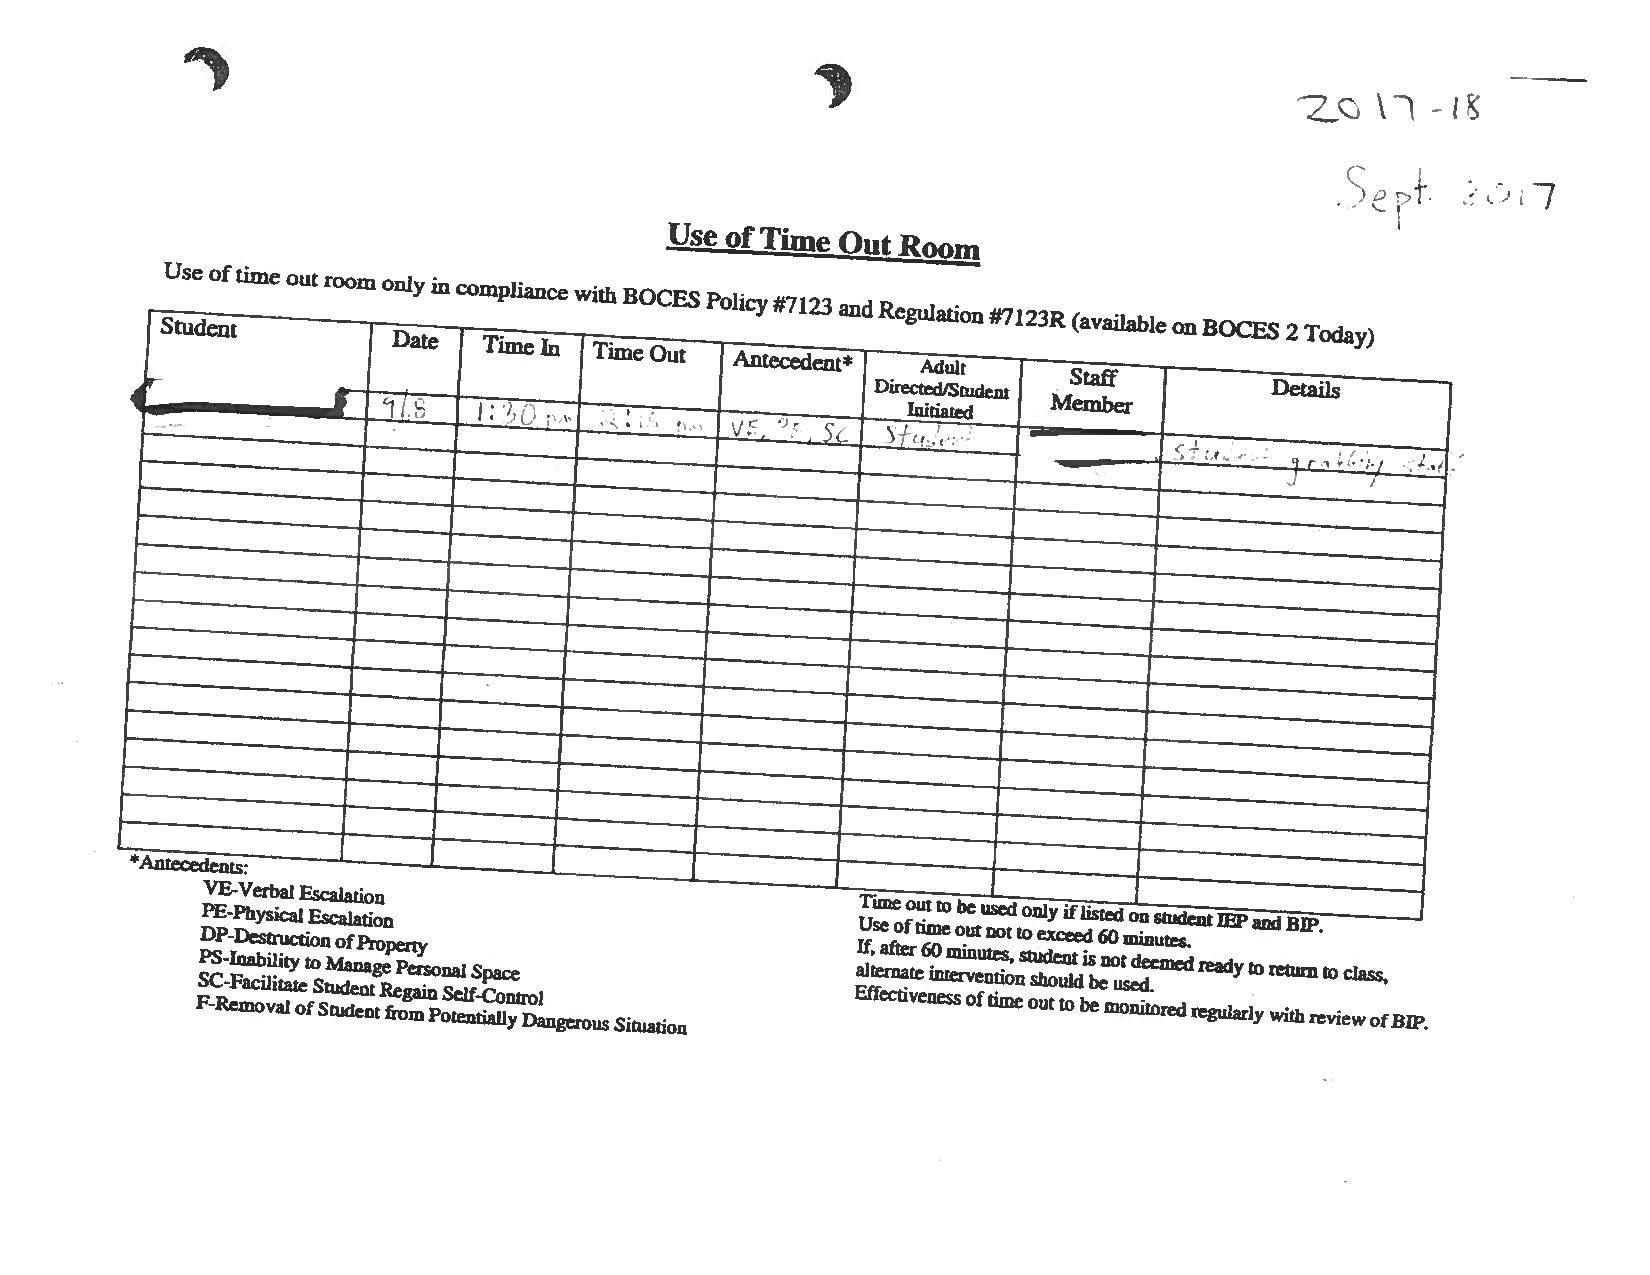 2017-18
Sept. 2017
Use of Time Out Room
Use of time out room only in compliance with BOCES Policy #7123 and Regulation #7123R (available on BOCES 2 Today)
Student Date Time In Time Out Antecedent* Adult Directed/Student Initiated Staff Member Details
9/8 1:30 pm pm VE, PE, SC Student
student grabbing
*Antecedents:
VE-Verbal Escalation
PE-Physical Escalation
DP-Destruction of Property
PS-Inability to Manage Personal Space
SC-Facilitate Student Regain Self-Control
F-Removal of Student from Potentially Dangerous Situation
Time out to be used only if listed on student IEP and BIP.
Use of time out not to exceed 60 minutes.
If, after 60 minutes, student is not deemed ready to return to class,
alternate intervention should be used.
Effectiveness of time out to be monitored regularly with review of BIP.